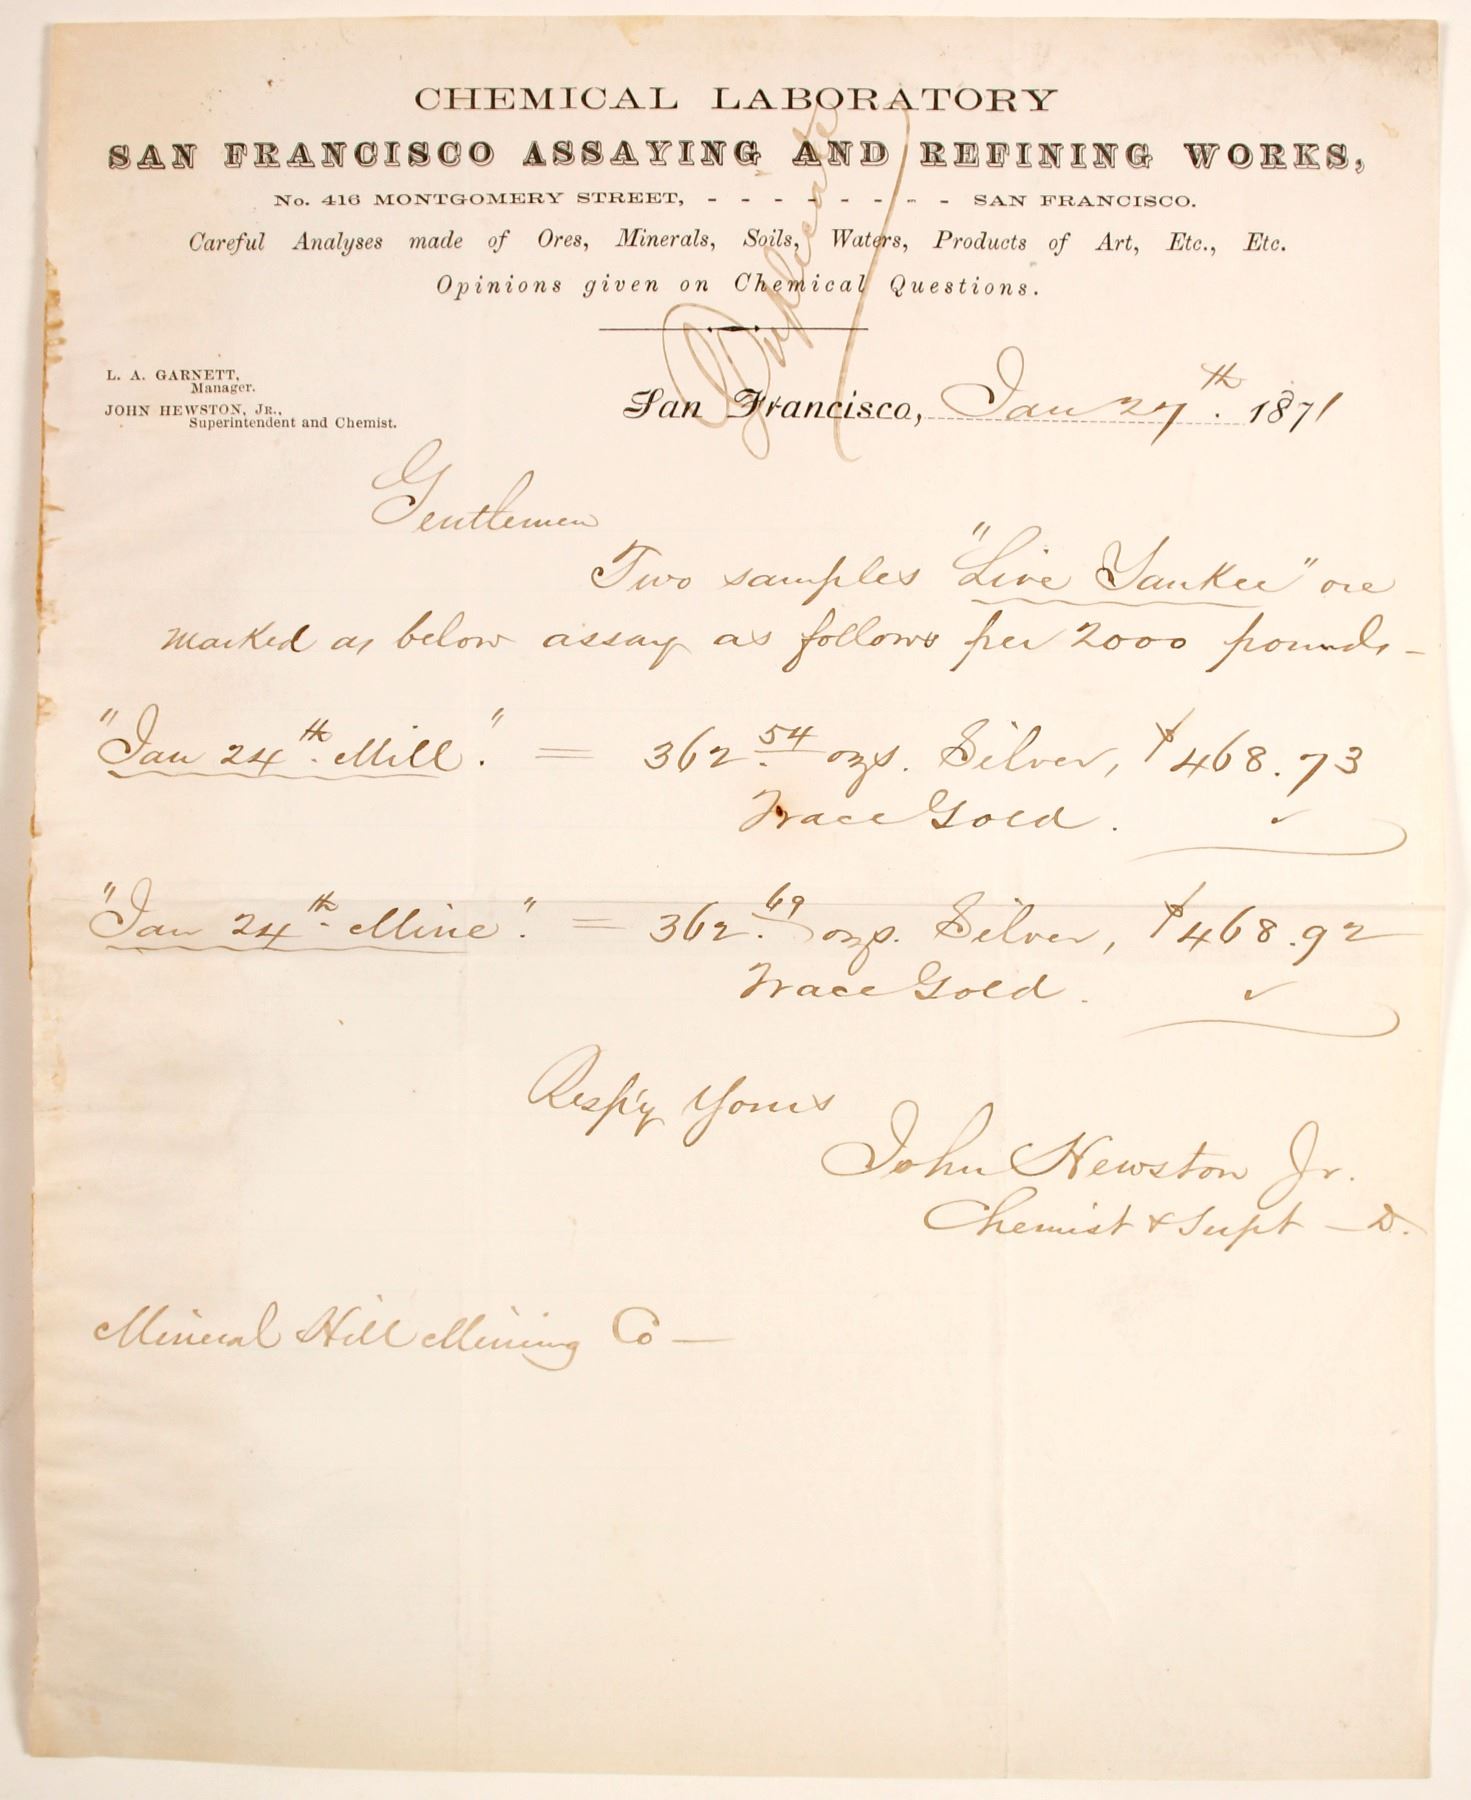 CHEMICAL LABORATORY
SAN FRANCISCO ASSAYING AND REFINING WORKS,
No. 416 MONTGOMERY STREET, - - - - - - - - SAN FRANCISCO.
Careful Analyses made of Ores, Minerals, Soils, Waters, Products of Art, Etc., Etc.
Opinions given on Chemical Questions.
Duplicate
L. A. GARNETT,
Manager.
JOHN HEWSTON, JR.,
Superintendent and Chemist.
San Francisco, Jan 27th. 1871
Gentlemen
Two samples "Live Yankee" ore
marked as below assay as follows per 2000 pounds -
"Jan 24th. Mill". = 362 54 ozs. Silver, $468.73
Trace Gold. ✓
"Jan 24th. Mine". = 362. 69 ozs. Silver, $468.92
Trace Gold. ✓
Resp'y Yours
John Hewston Jr.
Chemist & Supt - D.
Mineral Hill Mining Co -